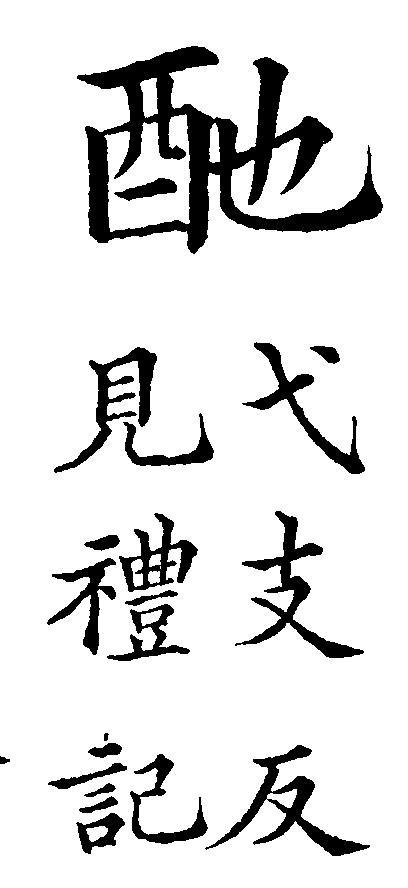 酏
弋支反
見禮記